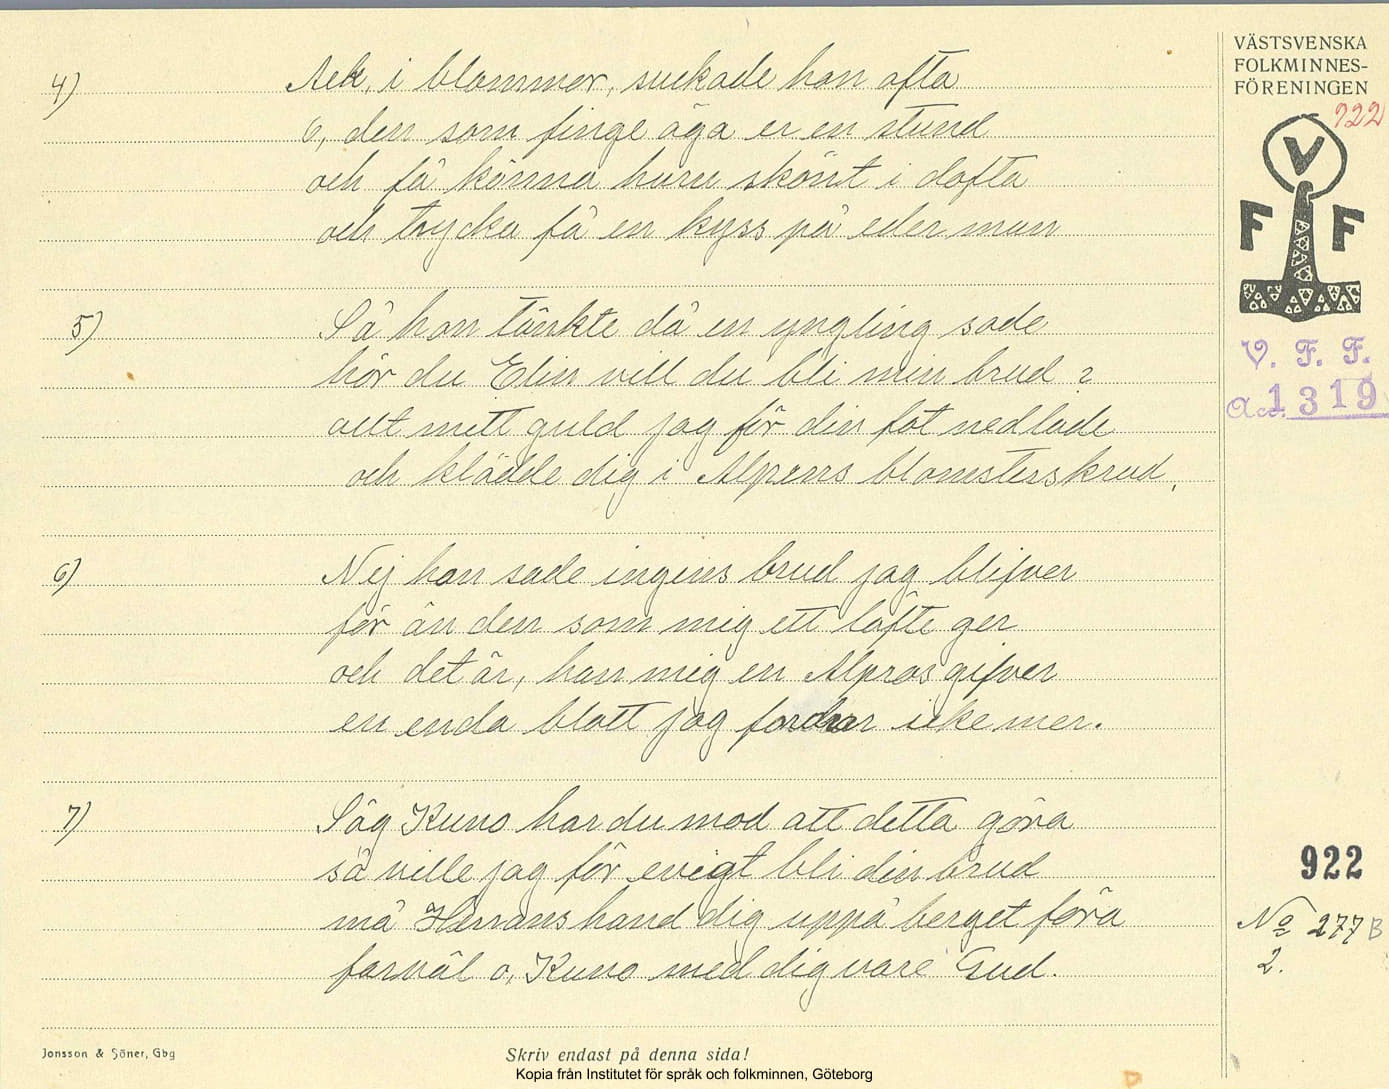 VÄSTSVENSKA
FOLKMINNES-
FÖRENINGEN
922
V
F F
V. F. F.
Acc. 1319
4) Ack, i blommor, suckade hon ofta
O, den som finge äga er en stund
och få känna huru skönt i dofta
och trycka få en kyss på eder mun
5) Så hon tänkte då en yngling sade
hör du Elin vill du bli min brud?
allt mitt guld jag för din fot nedlade
och klädde dig i Alpens blomsterskrud,
6) Nej hon sade ingens brud jag blifver
för än den som mig ett löfte ger
och det är, han mig en Alpros gifver
en enda blott jag fordrar icke mer.
7) Säg Kuno har du mod att detta göra
så ville jag för evigt bli din brud
må Herrans hand dig uppå berget föra
farväl o, Kuno med dig vare Gud.
922
No 277 B
2.
Jonsson & Söner, Gbg
Skriv endast på denna sida!
Kopia från Institutet för språk och folkminnen, Göteborg